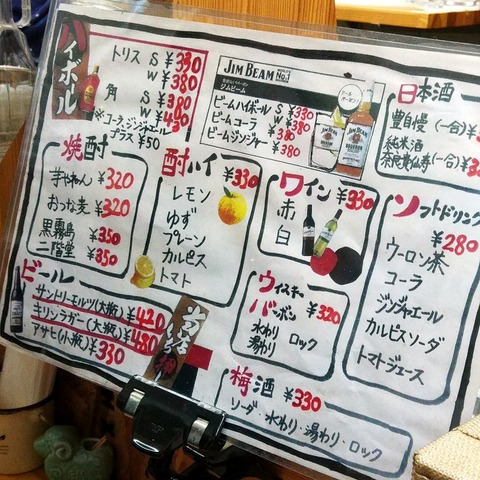 ハイボール
トリス S ¥330
W ¥380
角 S ¥380
W ¥430
※コーラ・ジンジャエール
プラス ¥50
JIM BEAM
ジムビーム
ビームハイボール ¥330
ビームコーラ ¥380
ビームジンジャー ¥380
日本酒
豊自慢 (一合)
純米酒
焼酎
芋やねん ¥320
おっな麦 ¥320
黒霧島 ¥350
二階堂 ¥350
酎ハイ ¥330
レモン
ゆず
プレーン
カルピス
トマト
ワイン ¥330
赤
白
ソフトドリンク
¥280
ウーロン茶
コーラ
ジンジャエール
カルピスソーダ
トマトジュース
ウィスキー
バーボン ¥320
水わり ロック
湯わり
ビール
サントリーモルツ(大瓶) ¥420
キリンラガー(大瓶) ¥480
アサヒ(小瓶) ¥330
梅酒 ¥330
ソーダ・水わり・湯わり・ロック